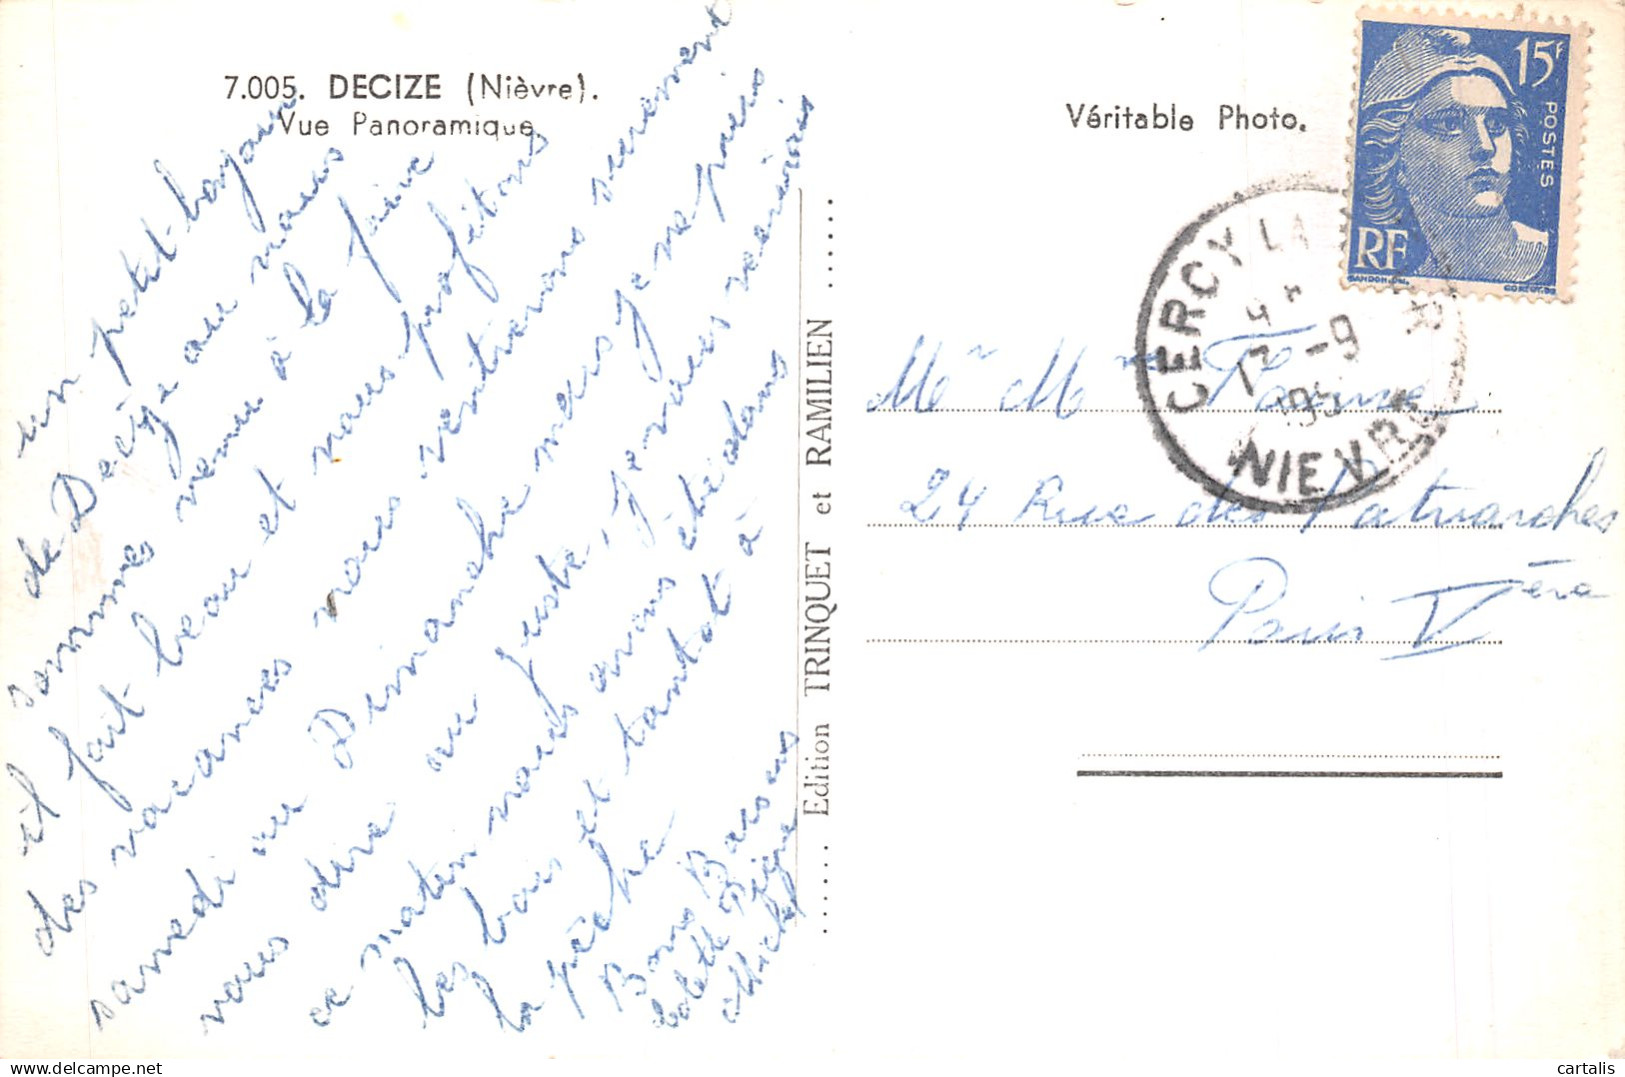 7.005. DECIZE (Nièvre).
Vue Panoramique
Véritable Photo.
15F
POSTES
RF
GANDON.DEL.
CORTOT.SC
CERCY LA
17 -9
195
NIEVRE
Edition TRINQUET et RAMILIEN
un petit bonjour
de Decize ou nous
sommes venu à la foire
il fait beau et nous profitons
des vacances nous rentrerons surement
samedi ou Dimanche mais je ne puis
vous dire au juste, Je vous
ce matin nous avons été dans
les bois et tantot à
la pêche
Bons Baisers
Colette Pierre
Michel
Mr Mme
24 Rue des Patriarches
Paris Vème
cartalis
www.delcampe.net